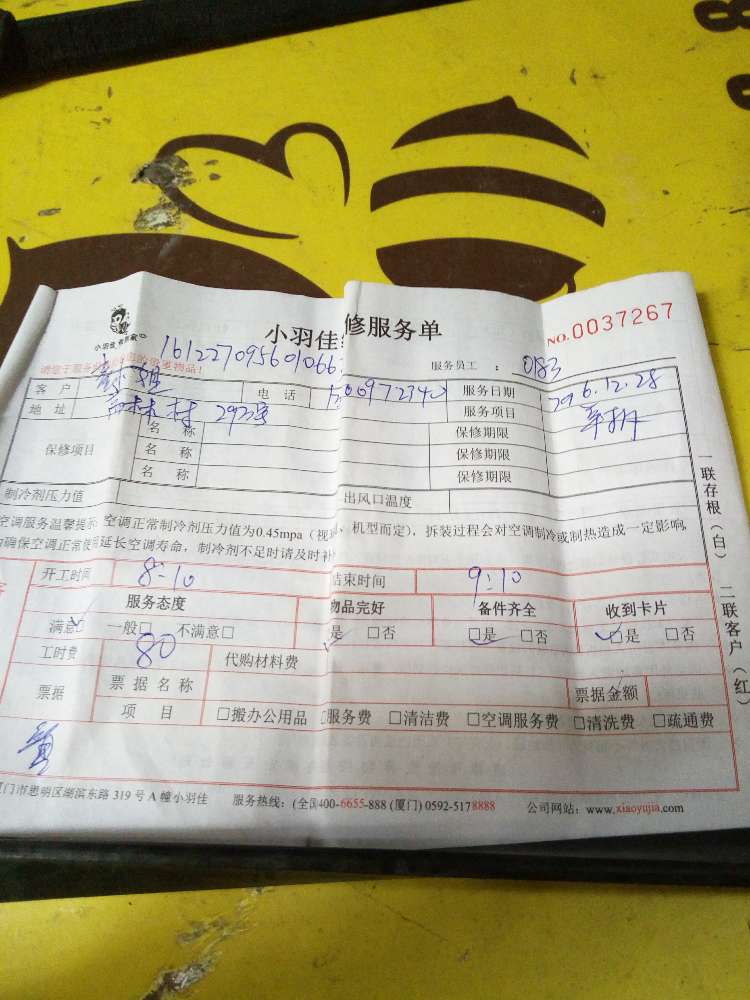 小羽佳 修服务单
NO.0037267
161227095601066
服务员工 : 083
客户 电话 服务日期 2016.12.28
地址 2923 服务项目
保修项目 名称 保修期限
名称 保修期限
名称 保修期限
制冷剂压力值 出风口温度
空调服务温馨提示 空调正常制冷剂压力值为0.45mpa(视 、机型而定),拆装过程会对空调制冷或制热造成一定影响,
确保空调正常使 延长空调寿命,制冷剂不足时请及时补
开工时间 8:10 结束时间 9:10
服务态度 物品完好 备件齐全 收到卡片
满意□ 一般□ 不满意□ 是 □否 □是 □否 □是 □否
工时费 80 代购材料费
票据 票据名称 票据金额
项目 □搬办公用品 □服务费 □清洁费 □空调服务费 □清洗费 □疏通费
门市思明区湖滨东路 319 号 A 幢小羽佳 服务热线:(全国400-6655-888 (厦门) 0592-5178888 公司网站:www.xiaoyujia.com
一联存根(白) 二联客户(红)